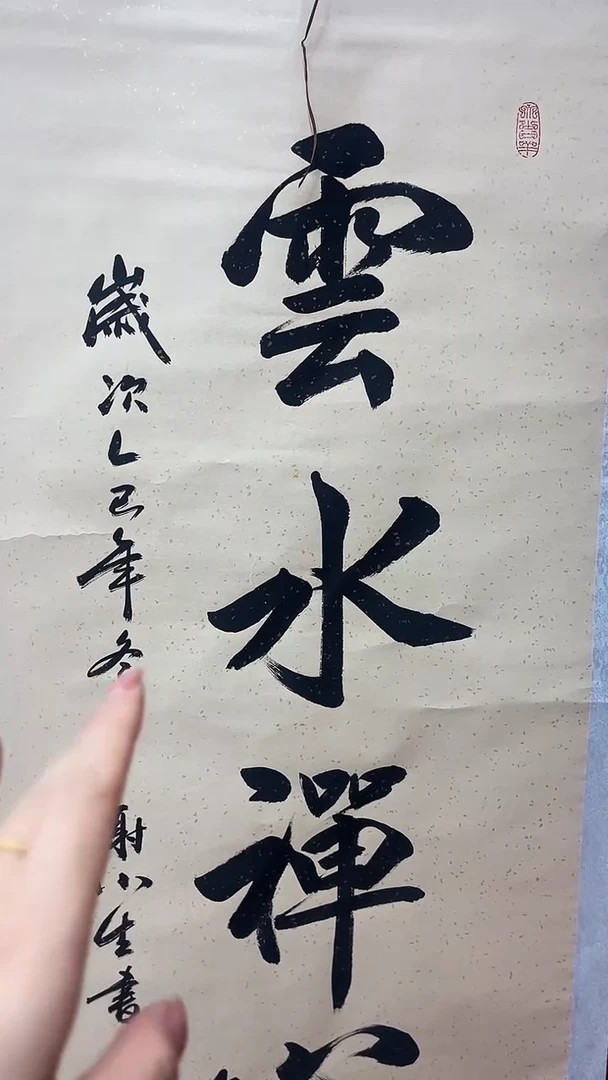 雲水禪
歲次乙巳年冬
小生書